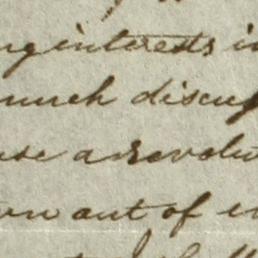 ng interests i
much discus
use a revolu
wn out of e